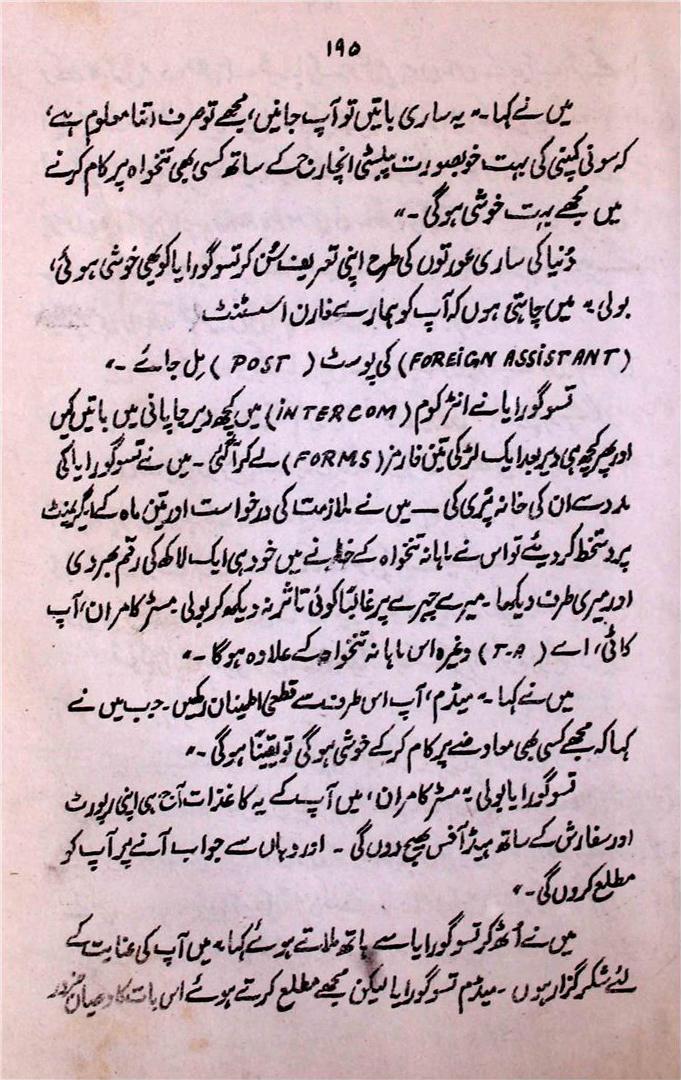 ۱۹۵
میں نے کہا۔ " یہ ساری باتیں تو آپ جانیں، مجھے تو صرف اتنا معلوم ہے،
کہ سونی کمپنی کی بہت خوبصورت پبلسٹی انچارج کے ساتھ کسی بھی تنخواہ پر کام کرنے
میں مجھے بہت خوشی ہوگی ۔"
دُنیا کی ساری عورتوں کی طرح اپنی تعریف سُن کر تسوگورایا کو بھی خوشی ہوئی،
بولی " میں چاہتی ہوں کہ آپ کو ہمارے فارن اسسٹنٹ
(FOREIGN ASSISTANT) کی پوسٹ (POST) مِل جائے ۔"
تسوگورایا نے انٹرکوم (INTERCOM) میں کچھ دیر جاپانی میں باتیں کیں
اور پھر کچھ ہی دیر بعد ایک لڑکی تین فارمز (FORMS) لے کر آگئی ۔ میں نے تسوگورایا کی
مدد سے ان کی خانہ پُری کی ـــ میں نے ملازمت کی درخواست اور تین ماہ کے ایگریمنٹ
پر دستخط کر دیئے تو اس نے ماہانہ تنخواہ کے خانے میں خود ہی ایک لاکھ کی رقم بھر دی
اور میری طرف دیکھا ۔ میرے چہرے پر غالباً کوئی تاثر نہ دیکھ کر بولی مسٹر کامران، آپ
کا ٹی، اے (T.A) وغیرہ اس ماہانہ تنخواہ کے علاوہ ہوگا ۔"
میں نے کہا ۔" میڈم، آپ اس طرف سے قطعی اطمینان رکھیں ۔ جب میں نے
کہا کہ مجھے کسی بھی معاوضے پر کام کرکے خوشی ہوگی تو یقیناً ہوگی ۔"
تسوگورایا بولی " مسٹر کامران، میں آپ کے یہ کاغذات آج ہی اپنی رپورٹ
اور سفارش کے ساتھ ہیڈ آفس بھیج دوں گی ۔ اور وہاں سے جواب آنے پر آپ کو
مطلع کروں گی ۔"
میں نے اُٹھ کر تسوگورایا سے ہاتھ ملاتے ہوئے کہا " میں آپ کی عنایت کے
لئے شکر گزار ہوں ۔ میڈم تسوگورایا لیکن مجھے مطلع کرتے ہوئے اس بات کا دھیان ضرور